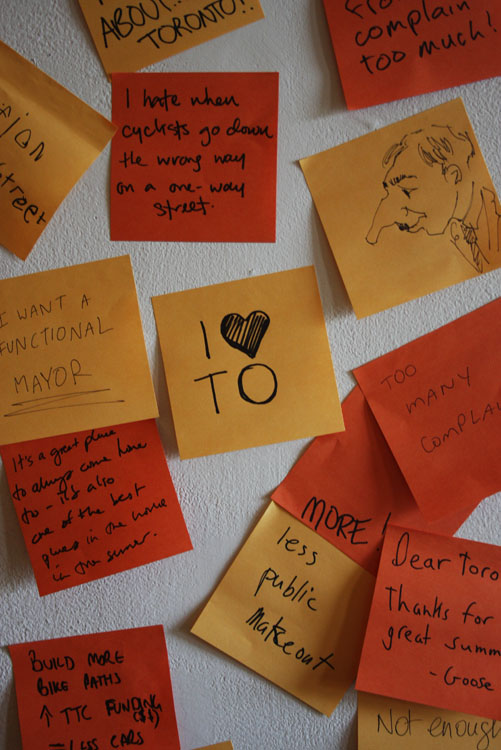 ABOUT...
TORONTO!!
complain
too much!
I hate when
cyclists go down
the wrong way
on a one-way
street.
street
I WANT A
FUNCTIONAL
MAYOR
I ♥
TO
TOO
MANY
COMPLAI
It's a great place
to always come home
to - it's also
one of the best
places in the world
in the summer.
MORE!
less
public
makeout
Dear Toro
Thanks for
great summ
- Goose
BUILD MORE
BIKE PATHS
↑ TTC FUNDING
($$)
- LESS CARS
Not enough